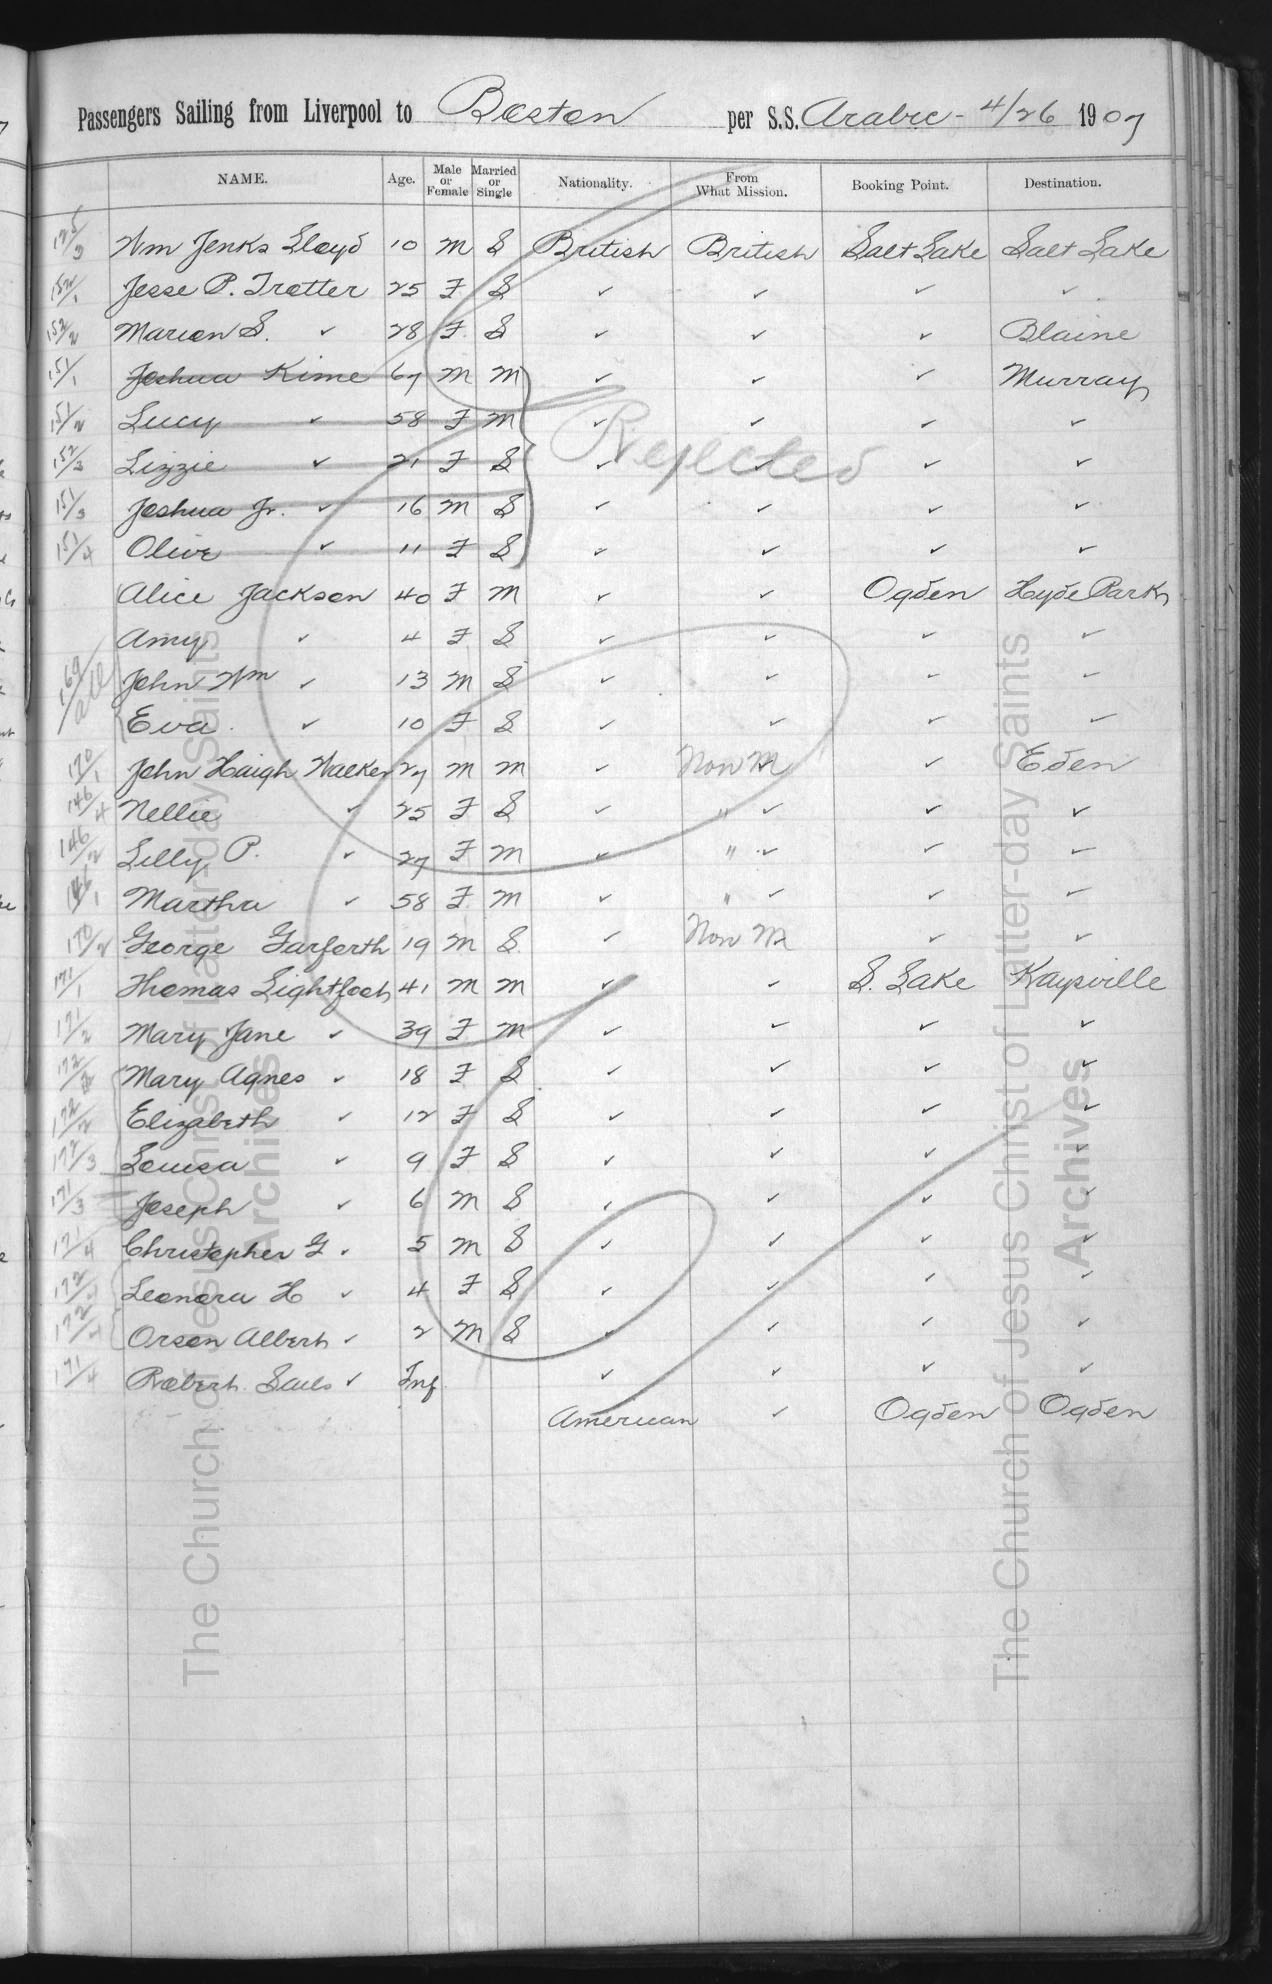 Passengers Sailing from Liverpool to Boston per S.S. Arabic - 4/26 1907
NAME. Age. Male or Female Married or Single Nationality. From What Mission. Booking Point. Destination.
Wm Jenks Lloyd 10 M S British British Salt Lake Salt Lake
152/1 Jesse P. Trotter 25 F S ✓ ✓ ✓ ✓
152/2 Marion S. ✓ 28 F S ✓ ✓ ✓ Blaine
151/1 Joshua Kime 67 M M ✓ ✓ ✓ Murray
151/2 Lucy ✓ 58 F M ✓ ✓ ✓ ✓
Rejected
152/3 Lizzie ✓ 21 F S ✓ ✓ ✓ ✓
151/3 Joshua Jr. ✓ 16 M S ✓ ✓ ✓ ✓
151/4 Olive ✓ 11 F S ✓ ✓ ✓ ✓
Alice Jackson 40 F M ✓ ✓ Ogden Hyde Park
Amy ✓ 4 F S ✓ ✓ ✓ ✓
169/all John Wm ✓ 13 M S ✓ ✓ ✓ ✓
Eva ✓ 10 F S ✓ ✓ ✓ ✓
170/1 John Haigh Walker 27 M M ✓ Non M ✓ Eden
146/4 Nellie ✓ 25 F S ✓ " ✓ ✓ ✓
146/2 Lilly P. ✓ 27 F M ✓ " ✓ ✓ ✓
146/1 Martha ✓ 58 F M ✓ " ✓ ✓ ✓
170/2 George Garforth 19 M S ✓ Non M ✓ ✓
171/1 Thomas Lightfoot 41 M M ✓ ✓ S. Lake Kaysville
171/2 Mary Jane ✓ 39 F M ✓ ✓ ✓ ✓
Mary Agnes ✓ 18 F S ✓ ✓ ✓ ✓
172/2 Elizabeth ✓ 12 F S ✓ ✓ ✓ ✓
172/3 Louisa ✓ 9 F S ✓ ✓ ✓ ✓
171/3 Joseph ✓ 6 M S ✓ ✓ ✓ ✓
171/4 Christopher G ✓ 5 M S ✓ ✓ ✓ ✓
Leonora H ✓ 4 F S ✓ ✓ ✓ ✓
172/4 Orson Albert ✓ 2 M S ✓ ✓ ✓ ✓
171/4 Robert ✓ Inf ✓ ✓ ✓ ✓
American ✓ Ogden Ogden
The Church of Jesus Christ of Latter-day Saints
Archives
The Church of Jesus Christ of Latter-day Saints
Archives